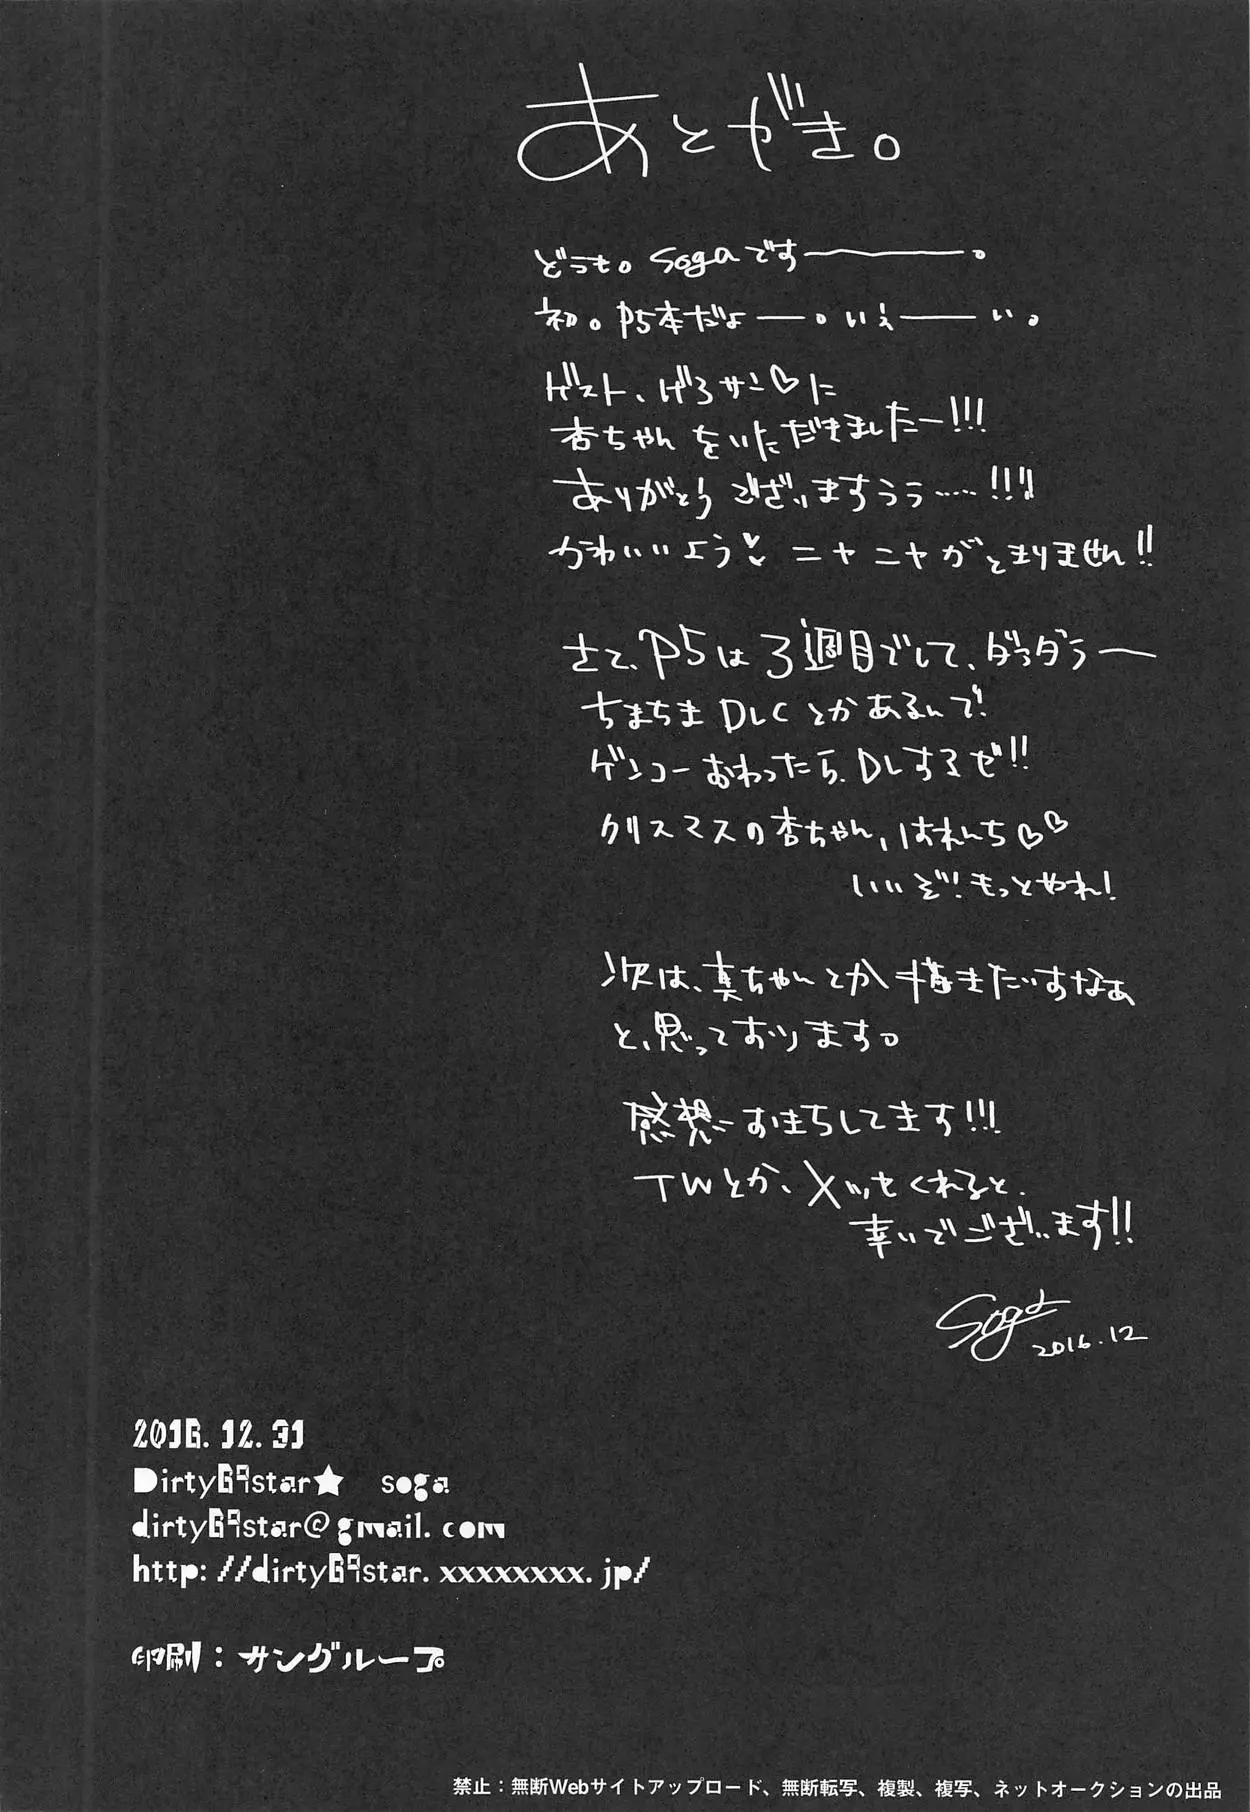 あとがき。
どうも。sogaですー。
初。P5本だよー。いぇーい。
ゲスト、げろサン♡に
杏ちゃんをいただきましたー!!!
ありがとうございますうぅ……!!!
かわいいよう♥ニヤニヤがとまりません!!
さて、P5は3週目でして、ダラダラー
ちまちまDLCとかあるんで!
ゲンコーおわったら、DLするぜ!!
クリスマスの杏ちゃん、はれんち♡♡
いいぞ!もっとやれ!
次は、真ちゃんとか描きたいすなぁ
と、思っております。
感想おまちしてます!!!
TWとか、メッセくれると、
幸いでございます!!
Soga
2016.12
2016.12.31
Dirty69star★ soga
dirty69star@gmail.com
http://dirty69star.xxxxxxxx.jp/
印刷：サングループ
禁止：無断Webサイトアップロード、無断転写、複製、複写、ネットオークションの出品